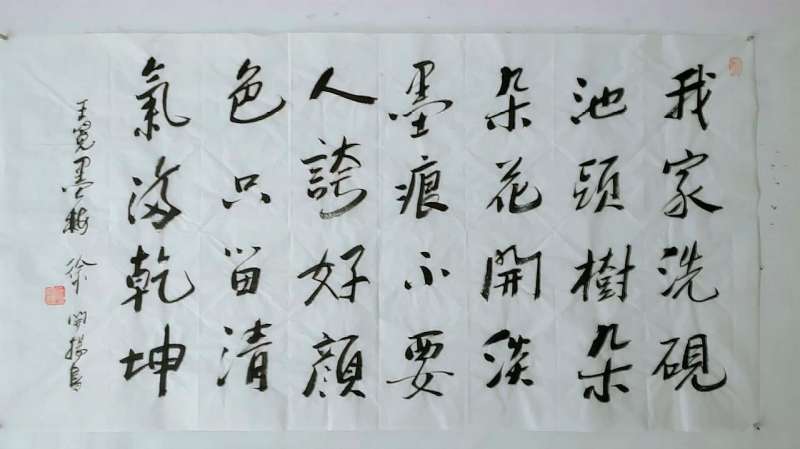 我家洗硯
池頭樹朵
朵花開淡
墨痕不要
人誇好顏
色只留清
氣滿乾坤
王冕墨梅 徐開揚書